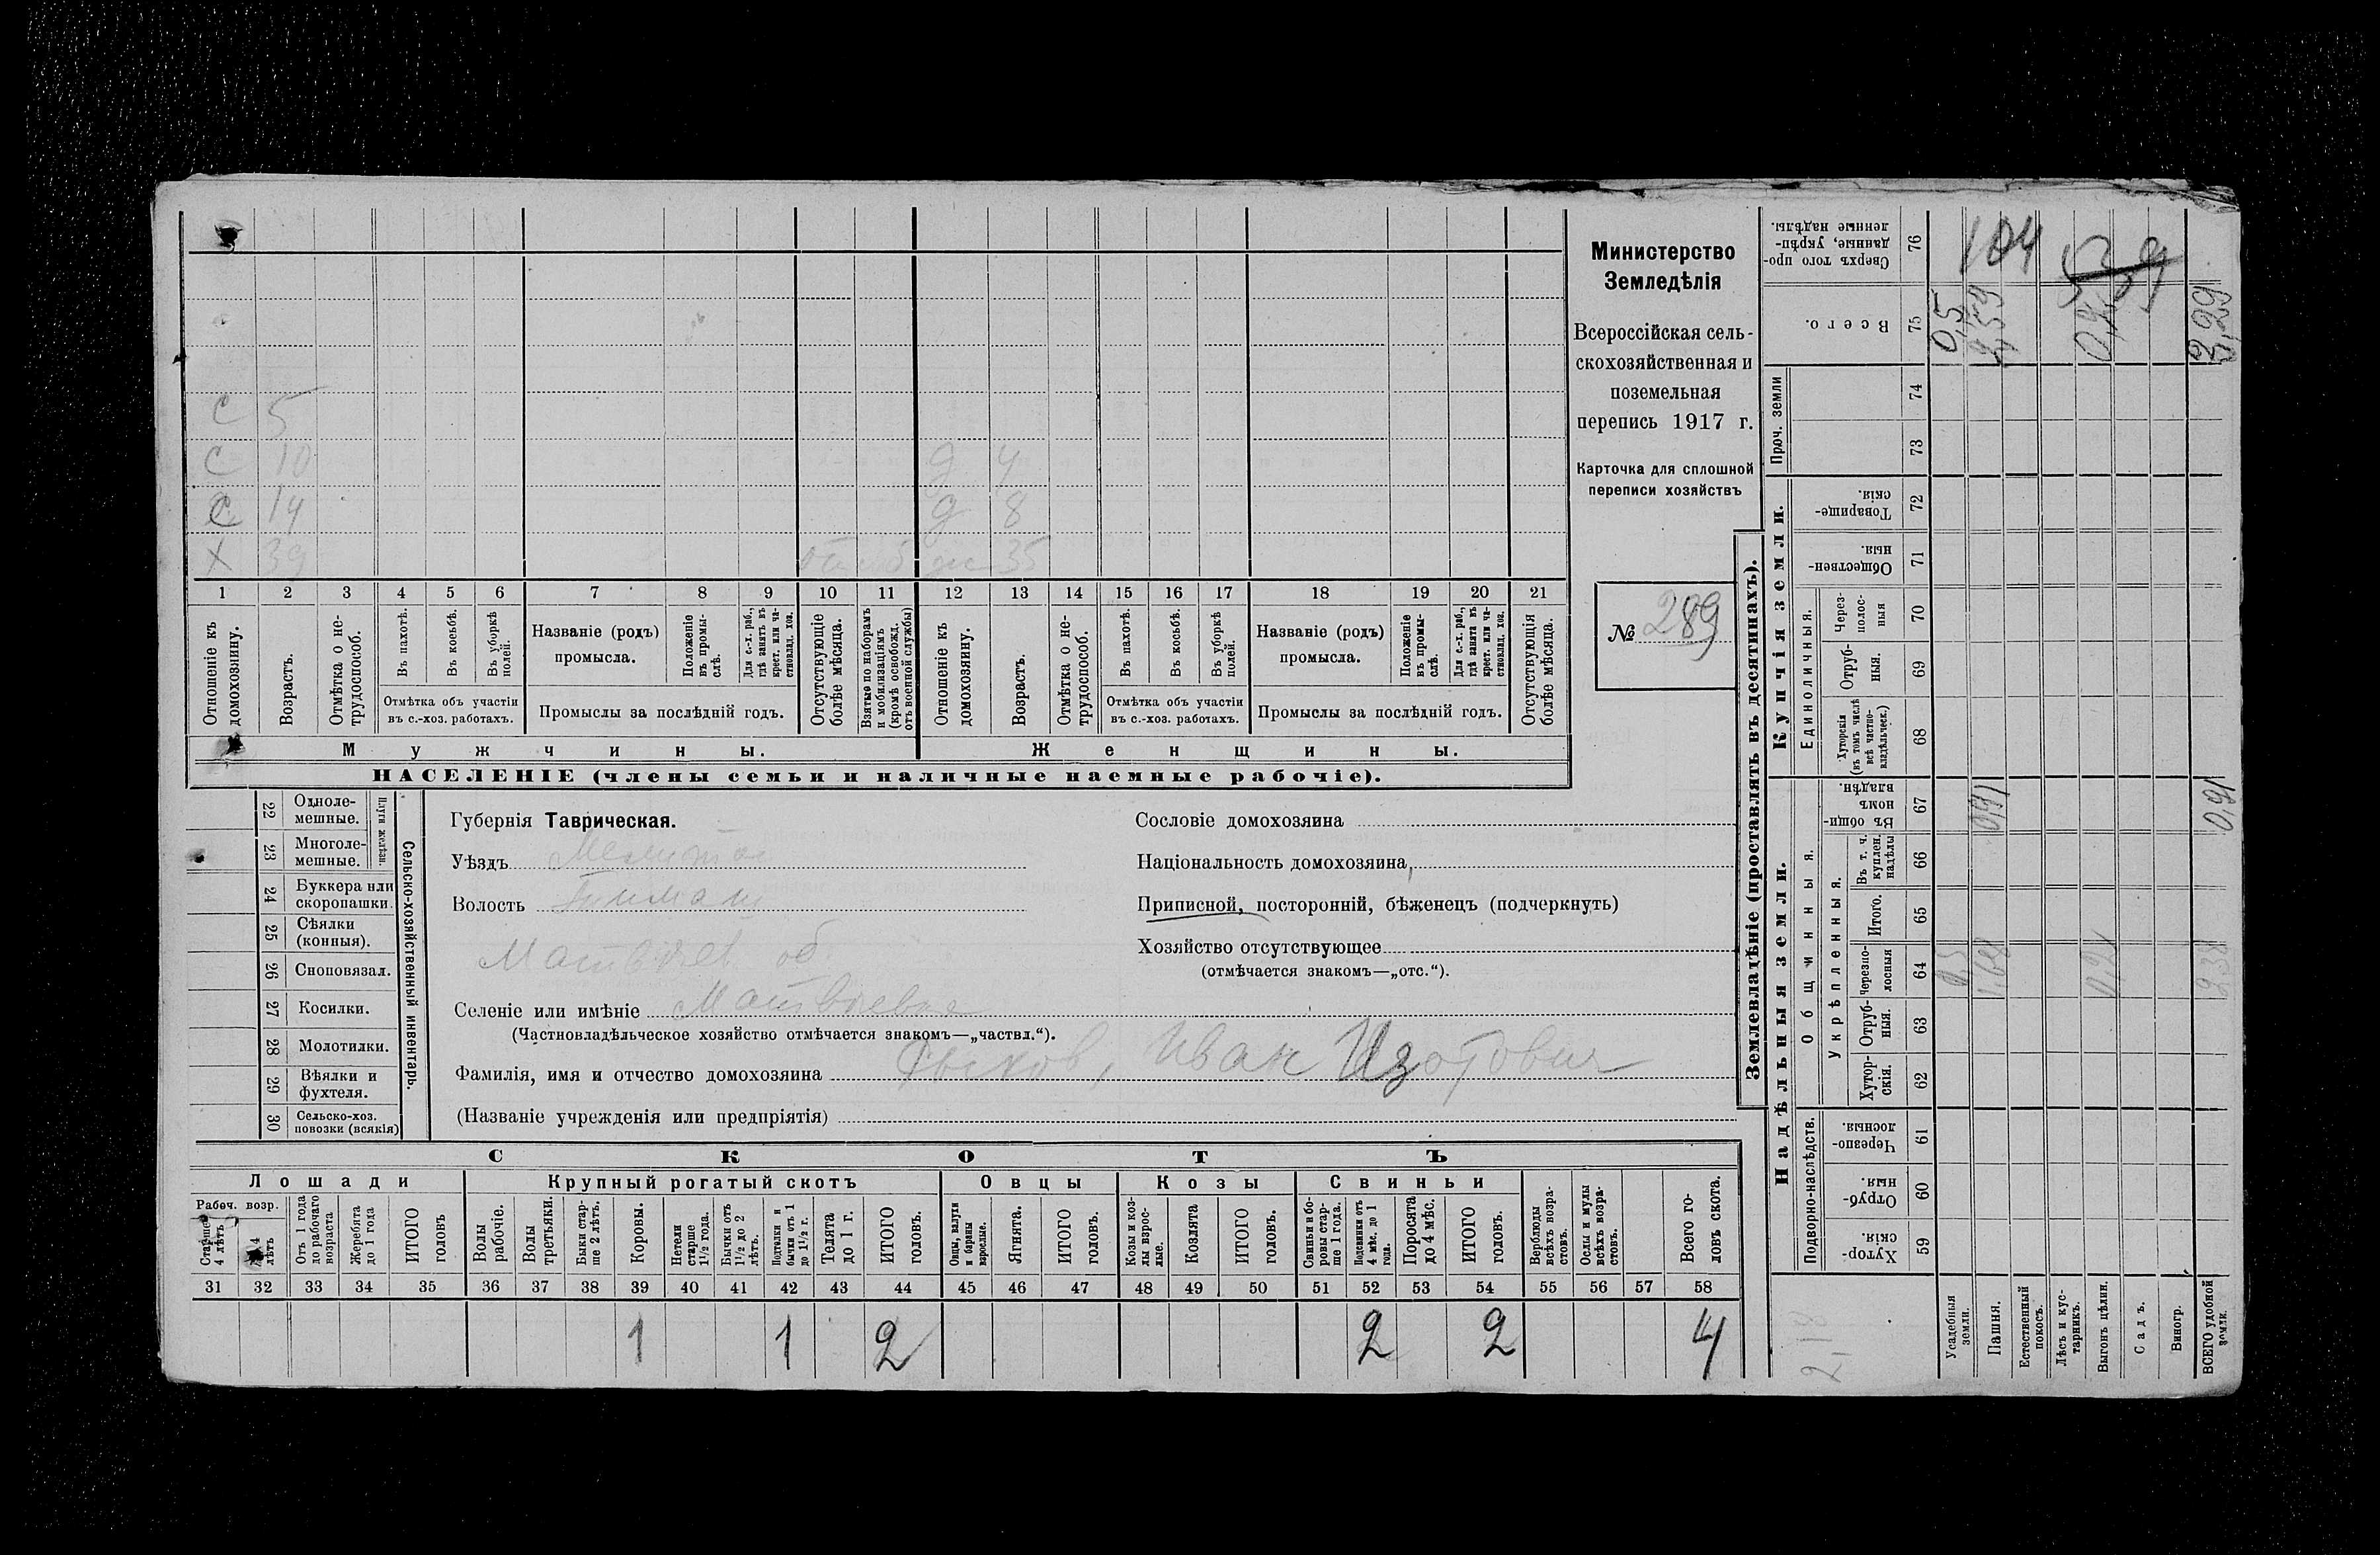 С 5
С 10 д 4
С 14 д 8
Х 39 ж 35
1 2 3 4 5 6 7 8 9 10 11 12 13 14 15 16 17 18 19 20 21
Отношеніе къ домохозяину.
Возрастъ.
Отмѣтка о не-трудоспособ.
Въ пахотѣ.
Въ косьбѣ.
Въ уборкѣ полей.
Отмѣтка объ участіи въ с.-хоз. работахъ.
Названіе (родъ) промысла.
Положеніе въ промы-слѣ.
Для с.-х. раб., гдѣ занятъ въ крест. или ча-стновлад. хоз.
Промыслы за послѣдній годъ.
Отсутствующіе болѣе мѣсяца.
Взятые по наборамъ и мобилизаціямъ (кромѣ освобожд. отъ военной службы)
Отношеніе къ домохозяину.
Возрастъ.
Отмѣтка о не-трудоспособ.
Въ пахотѣ.
Въ косьбѣ.
Въ уборкѣ полей.
Отмѣтка объ участіи въ с.-хоз. работахъ.
Названіе (родъ) промысла.
Положеніе въ промы-слѣ.
Для с.-х. раб., гдѣ занята въ крест. или ча-стновлад. хоз.
Промыслы за послѣдній годъ.
Отсутствующія болѣе мѣсяца.
Мужчины. Женщины.
НАСЕЛЕНІЕ (члены семьи и наличные наемные рабочіе).
Министерство
Земледѣлія
Всероссійская сель-
скохозяйственная и
поземельная
перепись 1917 г.
Карточка для сплошной
переписи хозяйствъ
№ 289
Сельско-хозяйственный инвентарь.
Плуги желѣзн.
22 Одноле-мешные.
23 Многоле-мешные.
24 Буккера или скоропашки.
25 Сѣялки (конныя).
26 Сноповязал.
27 Косилки.
28 Молотилки.
29 Вѣялки и фухтеля.
30 Сельско-хоз. повозки (всякія)
Губернія Таврическая.
Уѣздъ
Волость
Матвѣев об
Селеніе или имѣніе Матвѣевка
(Частновладѣльческое хозяйство отмѣчается знакомъ—„частвл.“).
Фамилія, имя и отчество домохозяина Рыков, Иван Изотович
(Названіе учрежденія или предпріятія)
Сословіе домохозяина
Національность домохозяина
Приписной, посторонній, бѣженецъ (подчеркнуть)
Хозяйство отсутствующее
(отмѣчается знакомъ—„отс.“).
СКОТЪ
Лошади Крупный рогатый скотъ Овцы Козы Свиньи
Рабоч. возр.
Старше 4 лѣтъ
лѣтъ
Отъ 1 года до рабочаго возраста
Жеребята до 1 года
ИТОГО головъ
Волы рабочіе.
Волы третьяки.
Быки стар-ше 2 лѣтъ.
Коровы.
Нетели старше 1½ года.
Бычки отъ 1½ до 2 лѣтъ.
Подтелки и бычки отъ 1 до 1½ г.
Телята до 1 г.
ИТОГО головъ.
Овцы, валухи и бараны взрослые.
Ягнята.
ИТОГО головъ.
Козы и коз-лы взрос-лые.
Козлята
ИТОГО головъ.
Свиньи и бо-ровы стар-ше 1 года.
Подсвинки отъ 4 мѣс. до 1 года.
Поросята до 4 мѣс.
ИТОГО головъ.
Верблюды всѣхъ возра-стовъ.
Ослы и мулы всѣхъ возра-стовъ.
Всего го-ловъ скота.
31 32 33 34 35 36 37 38 39 40 41 42 43 44 45 46 47 48 49 50 51 52 53 54 55 56 57 58
1 1 2 2 2 4
Землевладѣніе (проставлять въ десятинахъ).
Надѣльныя земли.
Подворно-наслѣдств.
Хутор-скія. 59
Отруб-ныя. 60
Черезпо-лосныя. 61
Общинныя.
Укрѣпленныя.
Хутор-скія. 62
Отруб-ныя. 63
Черезпо-лосныя 64
Итого. 65
Въ т. ч. куплен. надѣлы 66
Въ общи-номъ владѣн. 67
Купчія земли.
Единоличныя.
Хуторскія (въ томъ числѣ всѣ частно-владѣльческ.) 68
Отруб-ныя. 69
Через-полос-ныя 70
Обществен-ныя. 71
Товарище-скія. 72
Проч. земли 73 74
Всего. 75
Сверхъ того про-данные, укрѣп-ленные надѣлы. 76
Усадебныя земли. 0,5
Пашня. 0,91
Естественный покосъ.
Лѣсъ и кус-тарникъ.
Выгонъ цѣлин.
Садъ.
Виногр.
ВСЕГО удобной земли. 2,38 0,91 3,29
104